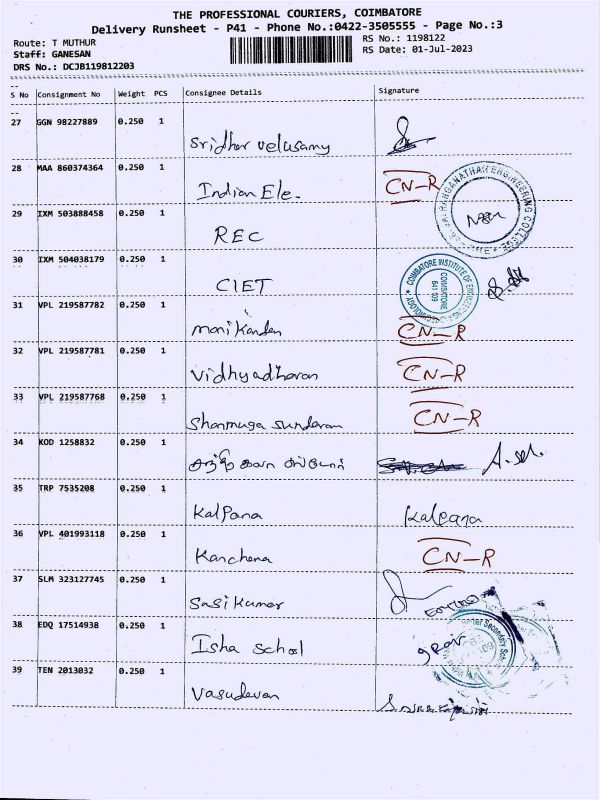 THE PROFESSIONAL COURIERS, COIMBATORE
Delivery Runsheet - P41 - Phone No.:0422-3505555 - Page No.:3
Route: T MUTHUR
RS No.: 1198122
Staff: GANESAN
RS Date: 01-Jul-2023
DRS No.: DCJB119812203
S No Consignment No Weight PCS Consignee Details Signature
27 GGN 98227889 0.250 1
Sridhar velusamy
28 MAA 860374364 0.250 1
Indian Ele. CN-R
29 IXM 503888458 0.250 1
REC
ENGINEERING COLLEGE
30 IXM 504038179 0.250 1
CIET
COIMBATORE INSTITUTE OF ENGINEERING & TECHNOLOGY
COIMBATORE
641 109
31 VPL 219587782 0.250 1
manikanden CN-R
32 VPL 219587781 0.250 1
Vidhyadharan CN-R
33 VPL 219587768 0.250 1
Shanmuga sundaram CN-R
34 KOD 1258832 0.250 1
35 TRP 7535208 0.250 1
Kalpana Kalpana
36 VPL 401993118 0.250 1
Kanchena CN-R
37 SLM 323127745 0.250 1
Sasikumar
38 EDQ 17514938 0.250 1
Isha School
39 TEN 2013032 0.250 1
Vasudevan